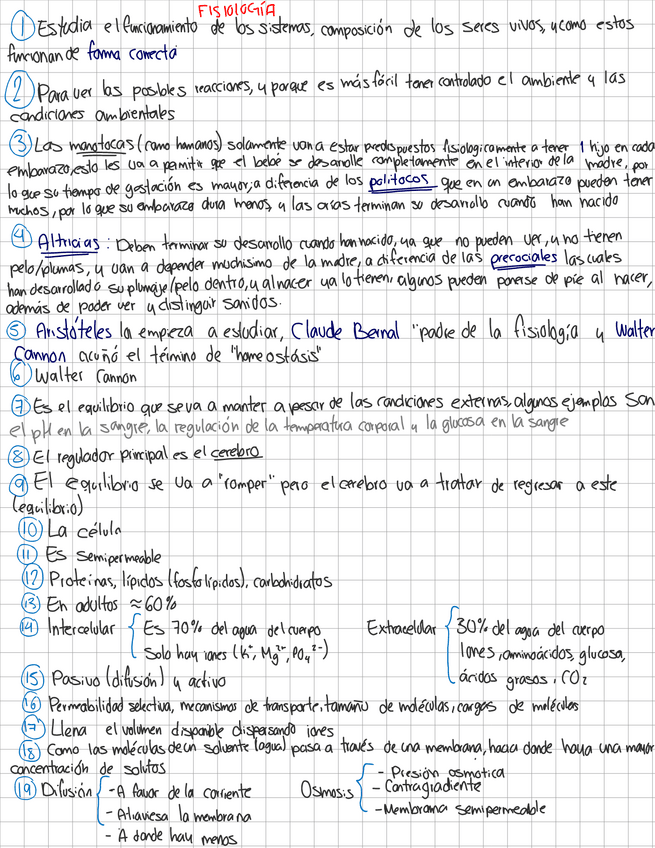 FISIOLOGÍA
① Estudia el funcionamiento de los sistemas, composición de los seres vivos, y como estos
funcionan de forma correcta
② Para ver las posibles reacciones, y porque es más fácil tener controlado el ambiente y las
condiciones ambientales
③ Las monotocas (como humanos) solamente van a estar predispuestos fisiologicamente a tener 1 hijo en cada
embarazo, esto les va a permitir que el bebé se desarrolle completamente en el interior de la madre, por
lo que su tiempo de gestación es mayor, a diferencia de los politocos que en un embarazo pueden tener
muchos, por lo que su embarazo dura menos, y las crías terminan su desarrollo cuando han nacido
④ Altricias: Deben terminar su desarrollo cuando han nacido, ya que no pueden ver, y no tienen
pelo/plumas, y van a depender muchisimo de la madre, a diferencia de las precociales las cuales
han desarrollado su plumaje/pelo dentro, y al nacer ya lo tienen, algunos pueden ponerse de pie al nacer,
además de poder ver y distinguir sonidos.
⑤ Aristóteles la empieza a estudiar, Claude Bernal "padre de la fisiología y Walter
Cannon acuñó el término de "homeostásis"
⑥ Walter Cannon
⑦ Es el equilibrio que se va a mantener a pesar de las condiciones externas, algunos ejemplos son
el pH en la sangre, la regulación de la temperatura corporal y la glucosa en la sangre
⑧ El regulador principal es el cerebro
⑨ El equilibrio se va a "romper" pero el cerebro va a tratar de regresar a este
(equilibrio)
⑩ La célula
⑪ Es semipermeable
⑫ Proteinas, lípidos (fosfolípidos), carbohidratos
⑬ En adultos ≈60%
⑭ Intercelular { Es 70% del agua del cuerpo Extracelular { 30% del agua del cuerpo
Solo hay iones (K⁺, Mg²⁺, PO₄²⁻) Iones, aminoácidos, glucosa,
⑮ Pasivo (difusión) y activo ácidos grasos, CO₂
⑯ Permabilidad selectiva, mecanismos de transporte, tamaño de moléculas, cargas de moléculas
⑰ Llena el volumen disponible dispersando iones
⑱ Como las moléculas de un solvente (agua) pasa a través de una membrana, hacia donde haya una mayor
concentración de solutos
⑲ Difusión { - A favor de la corriente Osmosis { - Presión osmotica
- Atraviesa la membrana - Contragradiente
- A donde hay menos - Membrama semipermeable